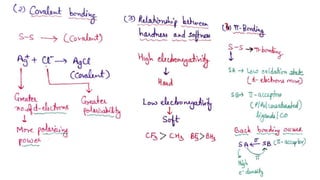 (2) Covalent bonding
S-S → (Covalent)
Ag⁺ + Cl⁻ → AgCl
(Covalent)
Greater no. of d-electrons
Greater polarisability
More polarising power
(3) Relationship between
hardness and softness
High electronegativity
Hard
Low electronegativity
Soft
CF₃⁻ > CH₃⁻ BF₃ > BH₃
π-Bonding
S-S → π-bonding
SA → Low oxidation state
(d-electrons more)
SB → π-acceptor
ligands / CO
Back bonding occurs
SA SB (π-acceptor)
π
High
e⁻ density